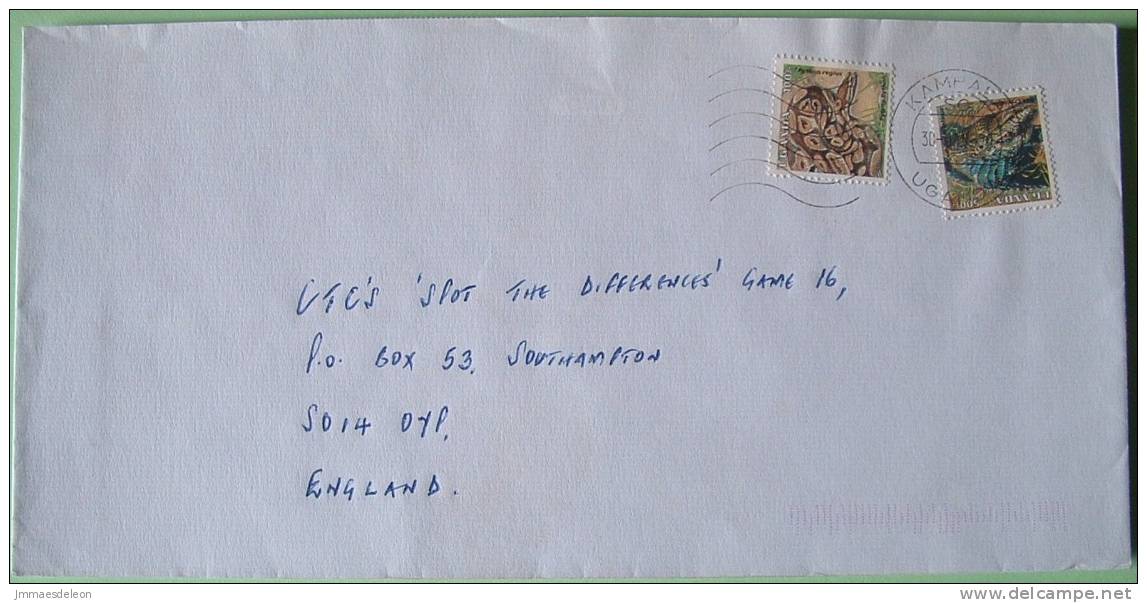 Python regius
UGANDA
KAMPA
UGAN
30-
500/-
UGANDA
UTC'S 'SPOT THE DIFFERENCES' GAME 16,
P.O. BOX 53, SOUTHAMPTON
SO14 0YP,
ENGLAND.
Jmmaesdeleon
delcampe.net